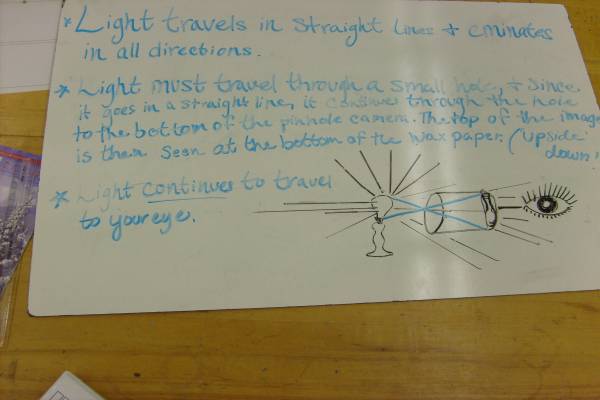 * Light travels in straight lines + eminates
in all directions.
* Light must travel through a small hole, + since
it goes in a straight line, it continues through the hole
to the bottom of the pinhole camera. The top of the image
is then seen at the bottom of the wax paper. (upside
down!
* Light continues to travel
to your eye.